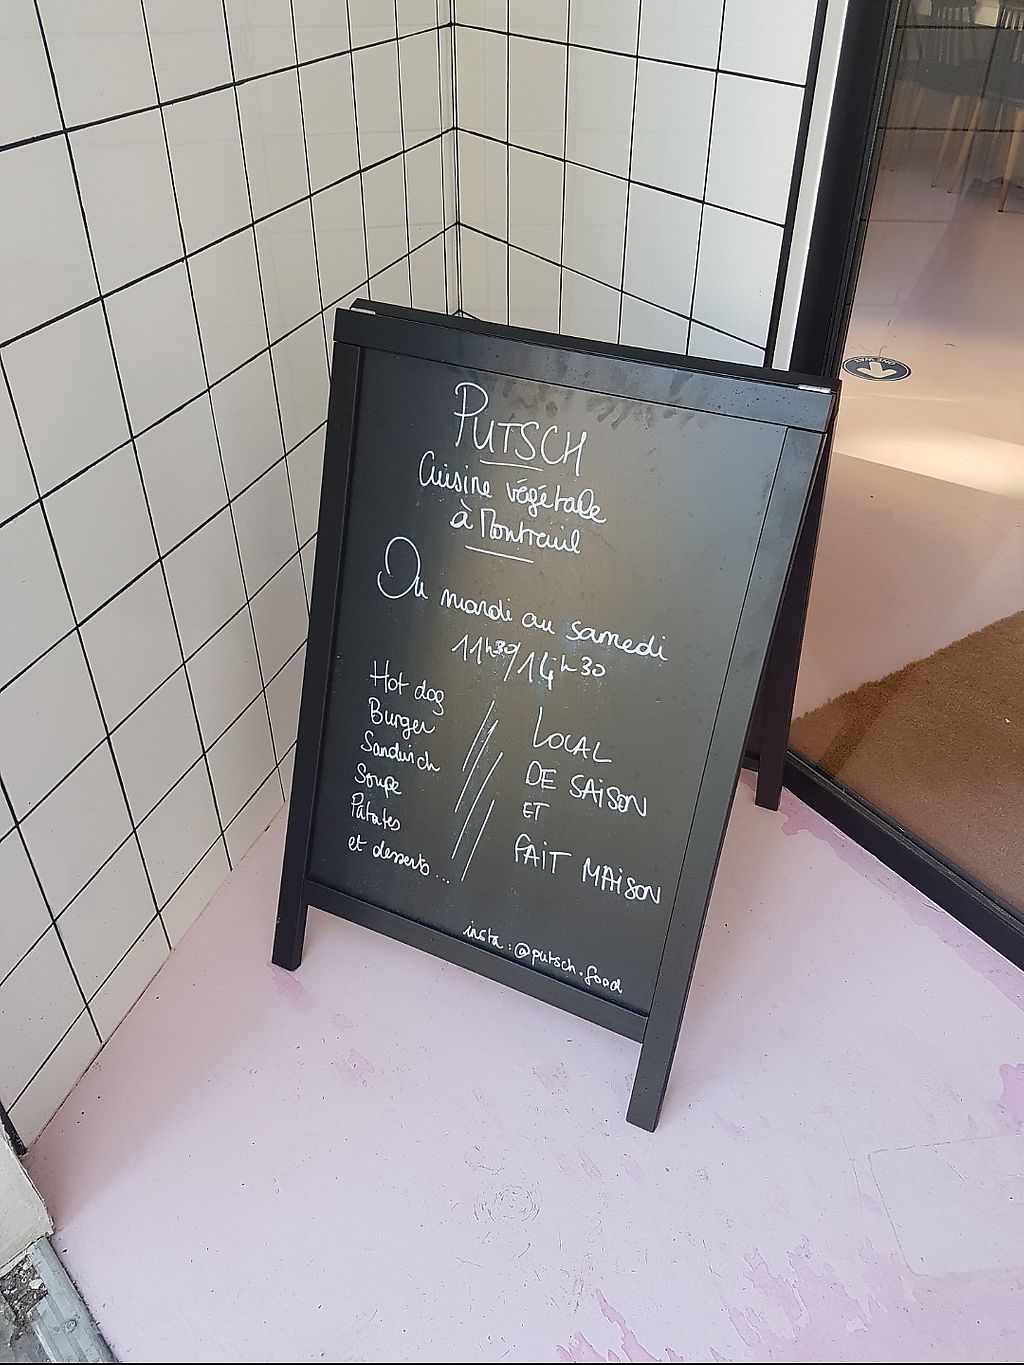 PUTSCH
Cuisine végétale
à Montreuil
Du mardi au samedi
11h30/14h30
Hot dog
Burger
Sandwich
Soupe
Patates
et desserts...
LOCAL
DE SAISON
ET
FAIT MAISON
insta : @putsch.food
ONE WAY